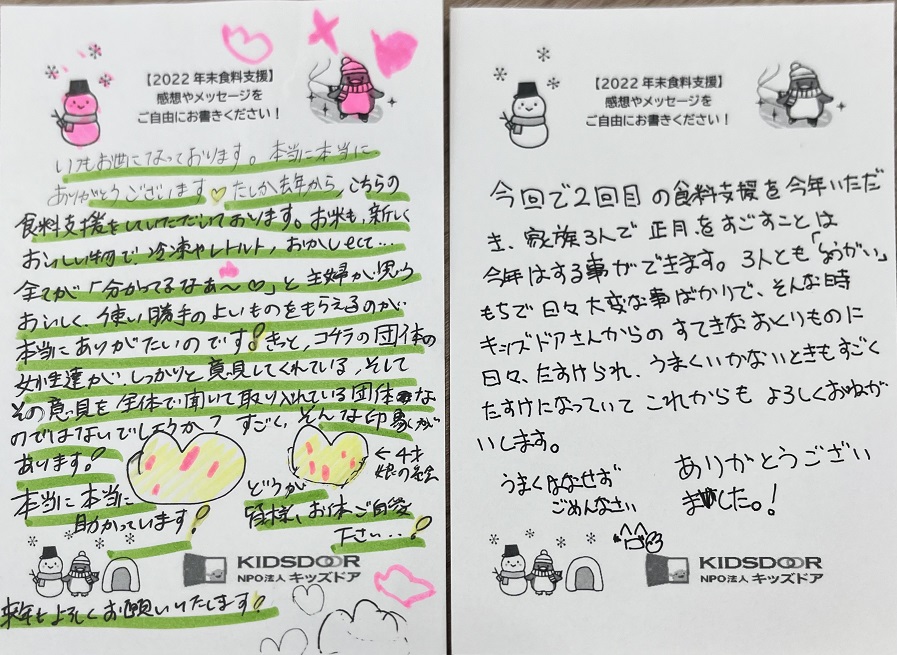 【2022 年末食料支援】
感想やメッセージを
ご自由にお書きください！
いつもお世話になっております。本当に本当に
ありがとうございます♡たしか去年から、こちらの
食料支援をいいただしております。お米も、新しく
おいしい物で、冷凍やレトルト、おかしetc...
全てが「分かってるなぁ〜♡」と主婦が思う
おいしく、使い勝手のよいものをもらえるのが
本当にありがたいのです！きっと、コチラの団体の
女性達が、しっかりと意見してくれている、そして
その意見を全体で聞いて取り入れている団体な
のではないでしょうか？すごく、そんな印象が
あります！
←4才
娘の絵
本当に本当に
助かっています！
どうか
皆様、お体ご自愛
下さい...！
KIDSDOOR
NPO法人 キッズドア
来年もよろしくお願いいたします！
【2022 年末食料支援】
感想やメッセージを
ご自由にお書きください！
今回で2回目の食料支援を今年いただ
き、家族3人で正月をすごすことは
今年はする事ができます。3人とも「しょうがい」
もちで日々大変な事ばかりで、そんな時
キッズドアさんからのすてきなおくりものに
日々、たすけられ、うまくいかないときもすごく
たすけになっていてこれからもよろしくおねが
いします。
うまくはなせず
ごめんなさい
ありがとうござい
ました。！
KIDSDOOR
NPO法人 キッズドア